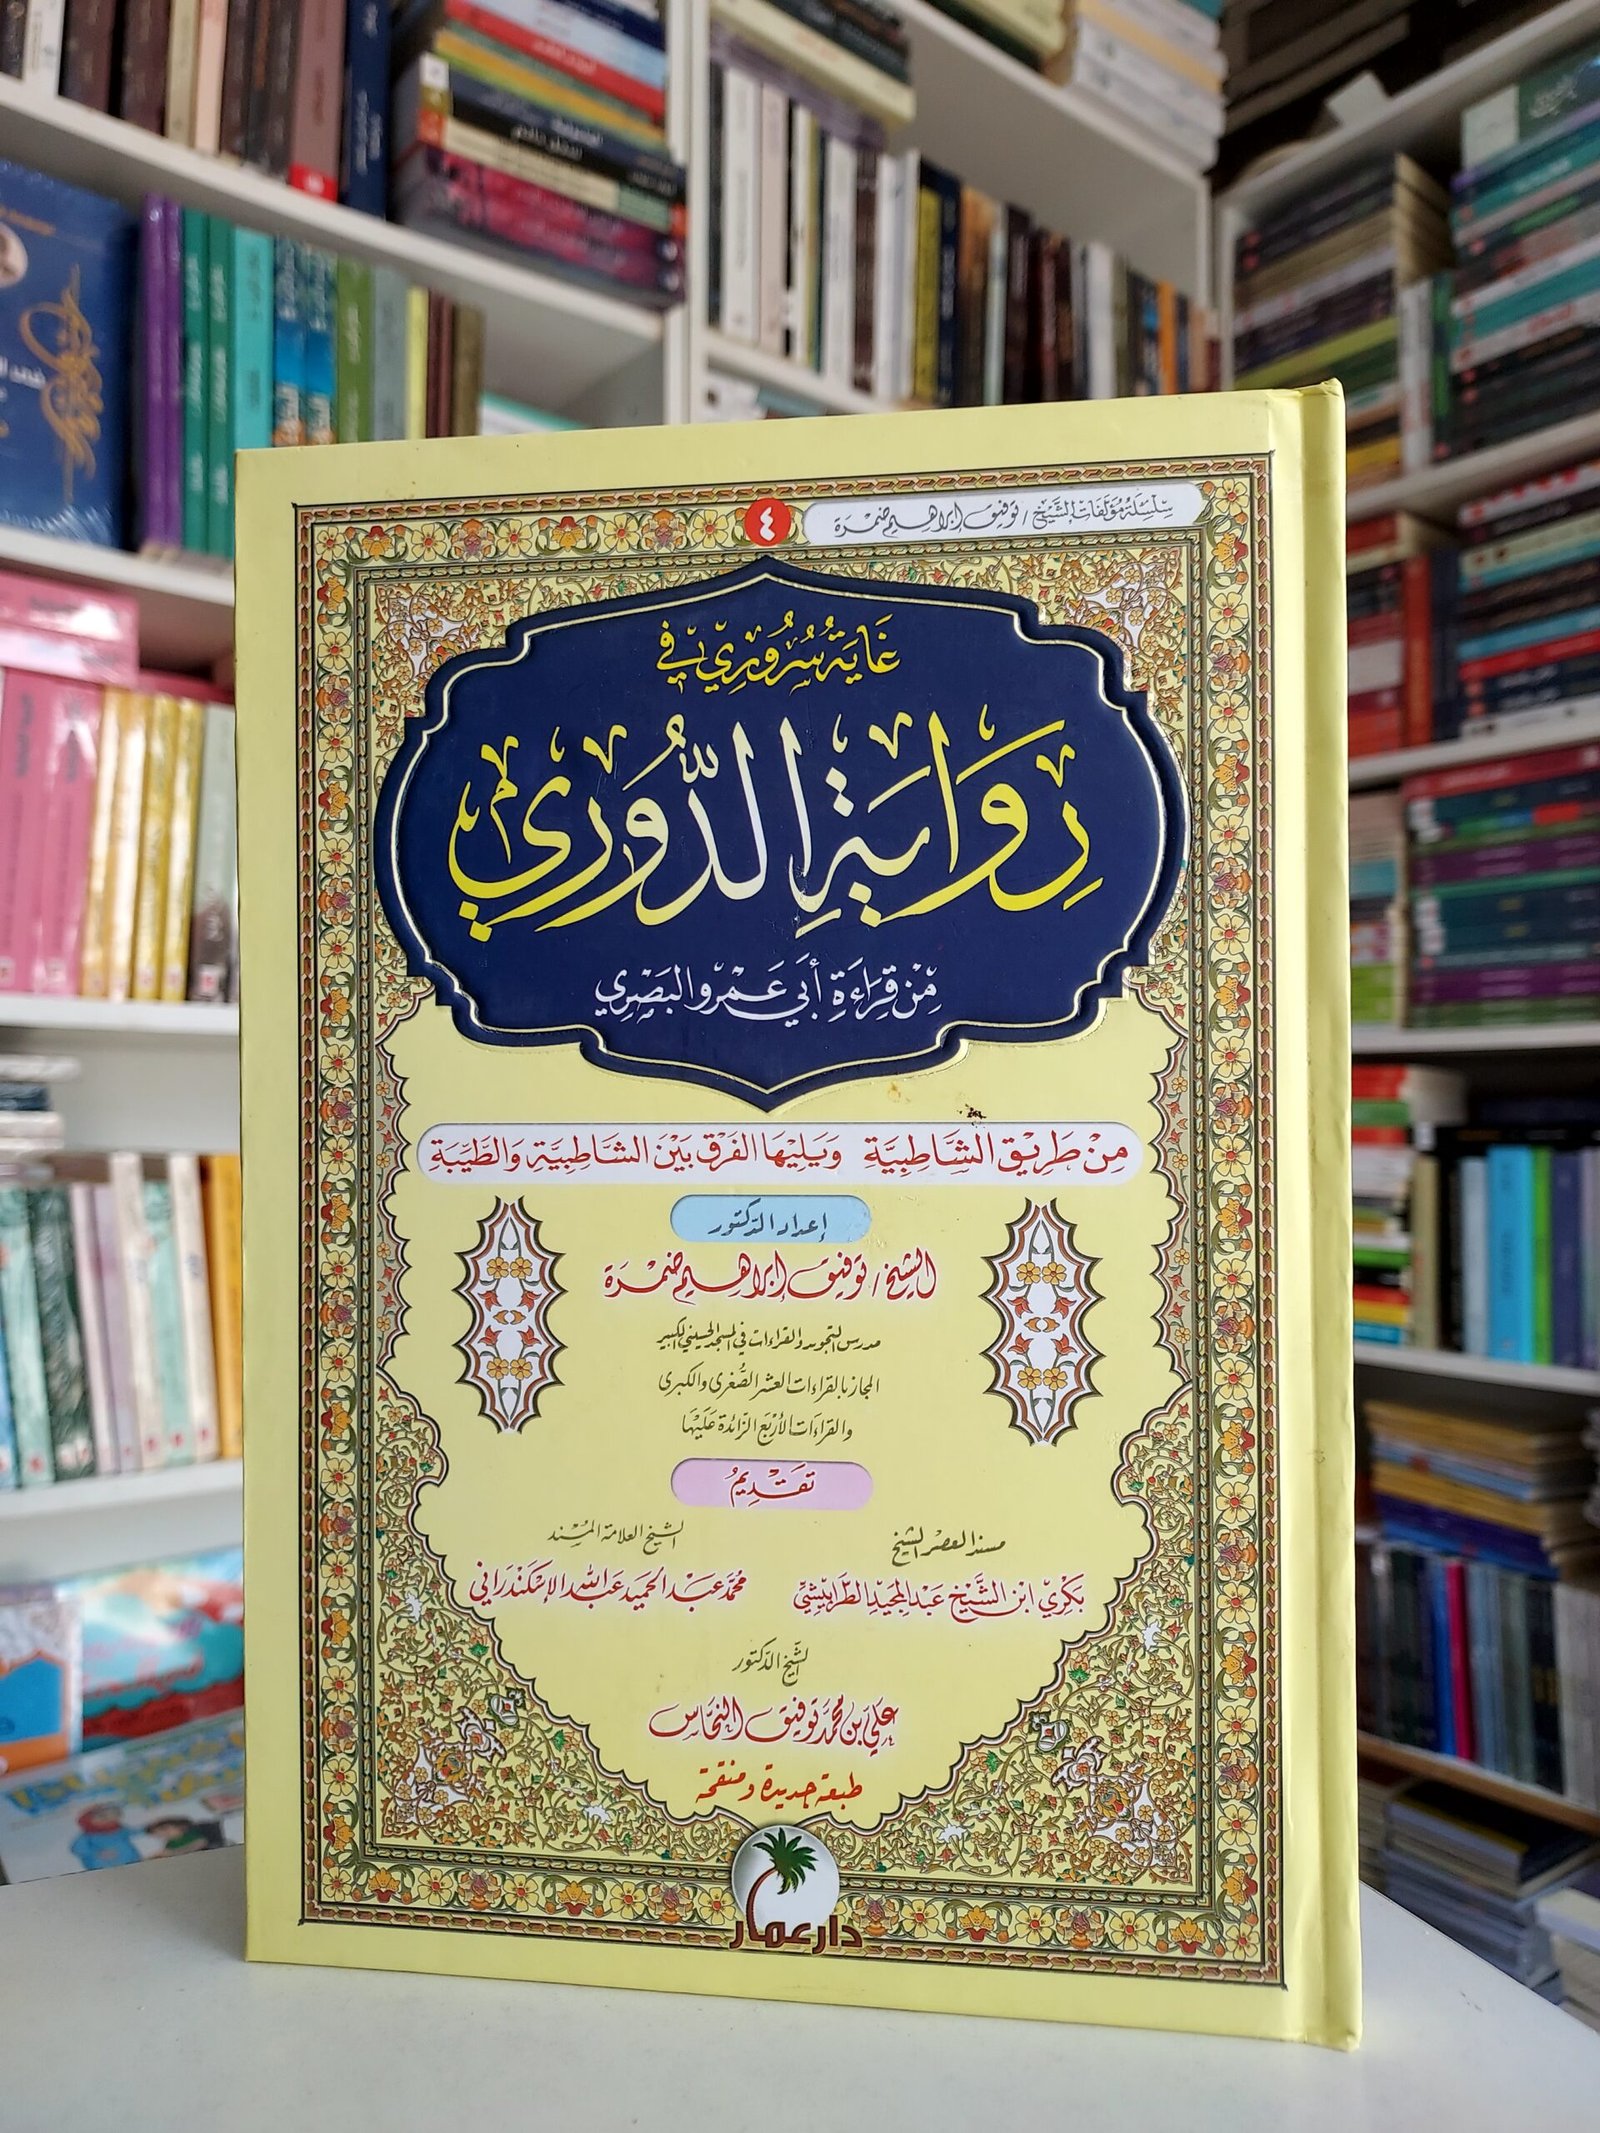 سِلْسِلَةُ مُؤَلَّفَاتِ الشَّيْخ / توفيق إبراهيم ضمرة
٤
غَايَةُ سُرُورِي فِي
رِوَايَةِ الدُّورِي
مِنْ قِرَاءَةِ أَبِي عَمْرٍو البَصْرِي
مِنْ طَرِيْقِ الشَّاطِبِيَّة وَيَلِيْهَا الفَرْق بَيْنَ الشَّاطِبِيَّةِ وَالطَّيِّبَةِ
إعداد الدكتور
الشيخ / توفيق إبراهيم ضمرة
مدرس التجويد والقراءات في المسجد الحسيني الكبير
المجاز بالقراءات العشر الصُّغرى والكبرى
والقراءَات الأرْبَع الزَّائدة عَلَيْهَا
تَقْدِيمُ
مسند العصر الشيخ
بَكْرِيّ ابْن الشَّيْخ عَبْد المَجِيدِ الطَّرَابِيشِيّ
الشيخ العلامة المُسْنِد
محمَّد عَبْد الحميد عَبد الله الإسْكَنْدَرَاني
الشَّيْخ الدّكتور
عَلِيّ بن محمّد توفيق النحَّاس
طبعة جديدة ومنقحة
دار عمار